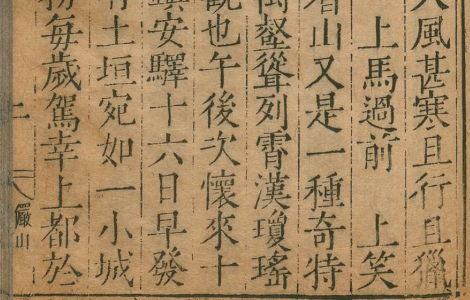 風甚寒且行且獵
上馬過前　上笑
看山又是一種奇特
萬壑聳列霄漢瓊瑤
觀也午後次懷來十
鎮安驛十六日早發
有土垣宛如一小城
務每歲駕幸上都於
二
儼山